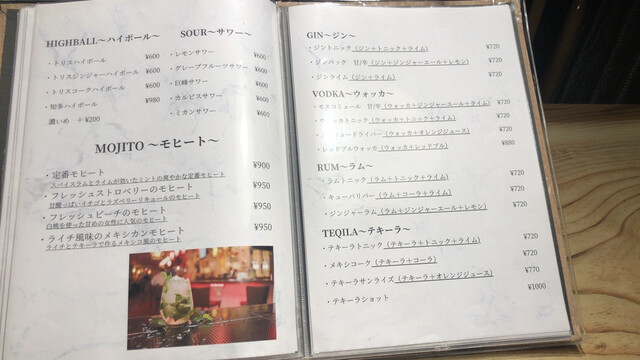 HIGHBALL～ハイボール～
・トリスハイボール ¥600
・トリスジンジャーハイボール ¥600
・トリスコークハイボール ¥600
・知多ハイボール ¥980
濃いめ ＋¥200
SOUR～サワー～
・レモンサワー ¥600
・グレープフルーツサワー ¥600
・巨峰サワー ¥600
・カルピスサワー ¥600
・ミカンサワー ¥600
MOJITO ～モヒート～
・定番モヒート ¥900
スパイスラムとライムが効いたミントの爽やかな定番モヒート
・フレッシュストロベリーのモヒート ¥950
甘酸っぱいイチゴとラズベリーリキュールのモヒート
・フレッシュピーチのモヒート ¥950
白桃を使った甘めの女性に人気のモヒート
・ライチ風味のメキシカンモヒート ¥950
ライチとテキーラで作るメキシコ風のモヒート
GIN～ジン～
・ジントニック（ジン＋トニック＋ライム） ¥720
・ジンバック 甘/辛（ジン＋ジンジャーエール＋レモン） ¥720
・ジンライム（ジン＋ライム） ¥720
VODKA～ウォッカ～
・モスコミュール 甘/辛（ウォッカ＋ジンジャーエール＋ライム） ¥720
ウォッカトニック（ウォッカ＋トニック＋ライム） ¥720
リュードライバー（ウォッカ＋オレンジジュース） ¥720
・レッドブルウォッカ（ウォッカ＋レッドブル） ¥880
RUM～ラム～
・ラムトニック（ラム＋トニック＋ライム） ¥720
・キューバリバー（ラム＋コーラ＋ライム） ¥720
・ジンジャーラム（ラム＋ジンジャーエール＋レモン） ¥720
TEQILA～テキーラ～
・テキーラトニック（テキーラ＋トニック＋ライム） ¥720
・メキシコーク（テキーラ＋コーラ） ¥720
・テキーラサンライズ（テキーラ＋オレンジジュース） ¥770
・テキーラショット ¥1000